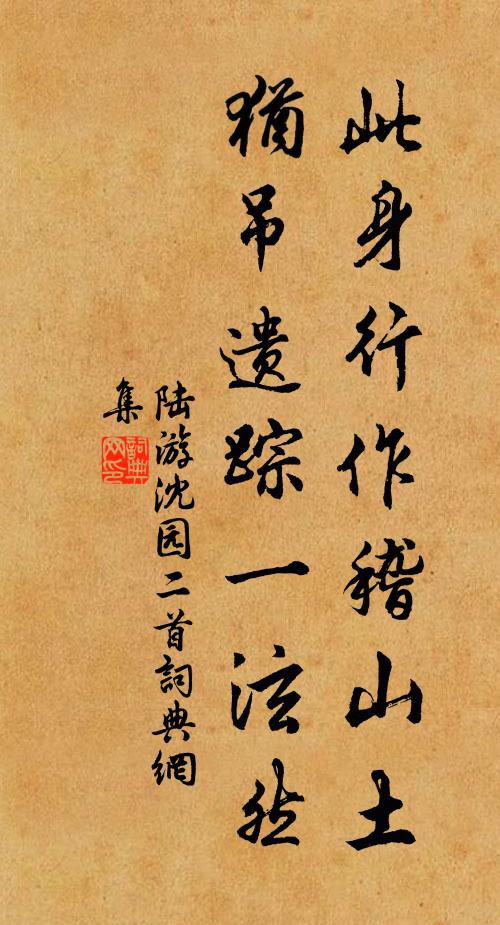 此身行作稽山土
猶吊遗踪一泫然
陆游沈园二首詞典網
集
詞典
网印